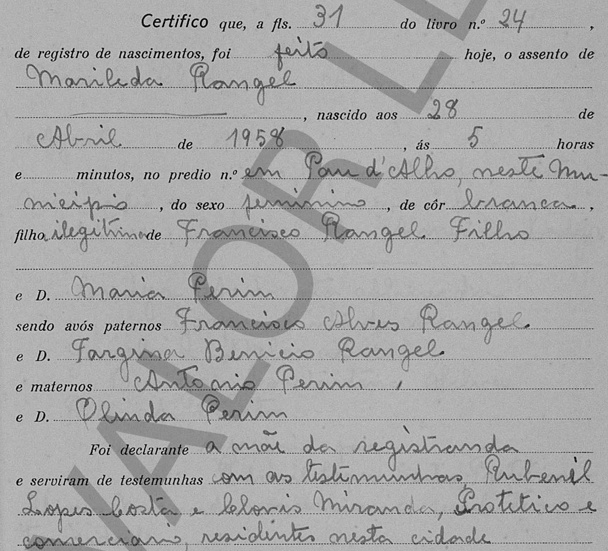 Certifico que, a fls. 31 do livro n.º 24,
de registro de nascimentos, foi feito hoje, o assento de
Marileda Rangel
, nascido aos 28 de
Abril de 1958, ás 5 horas
e minutos, no predio n.º em Pau d'Alho, neste Mu-
nicipio, do sexo feminino, de côr branca,
filha ilegitima de Francisco Rangel Filho
e D. Maria Perim
sendo avós paternos Francisco Alves Rangel
e D. Targina Benicio Rangel
e maternos Antonio Perim,
e D. Olinda Perim
Foi declarante a mãe da registranda
e serviram de testemunhas com as testemunhas Rubenil
Lopes Costa e Cloris Miranda, Protetico e
comerciario, residentes nesta cidade
VALOR